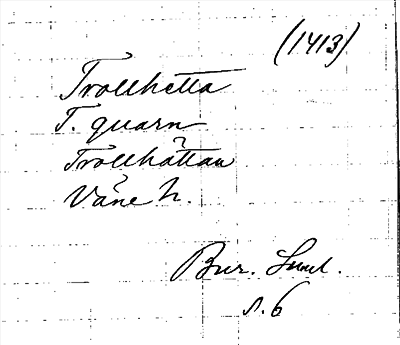 (1413)
Trollhetta
T. quarn
Trollhättan
Väne h.
Bur. Sund.
s. 6